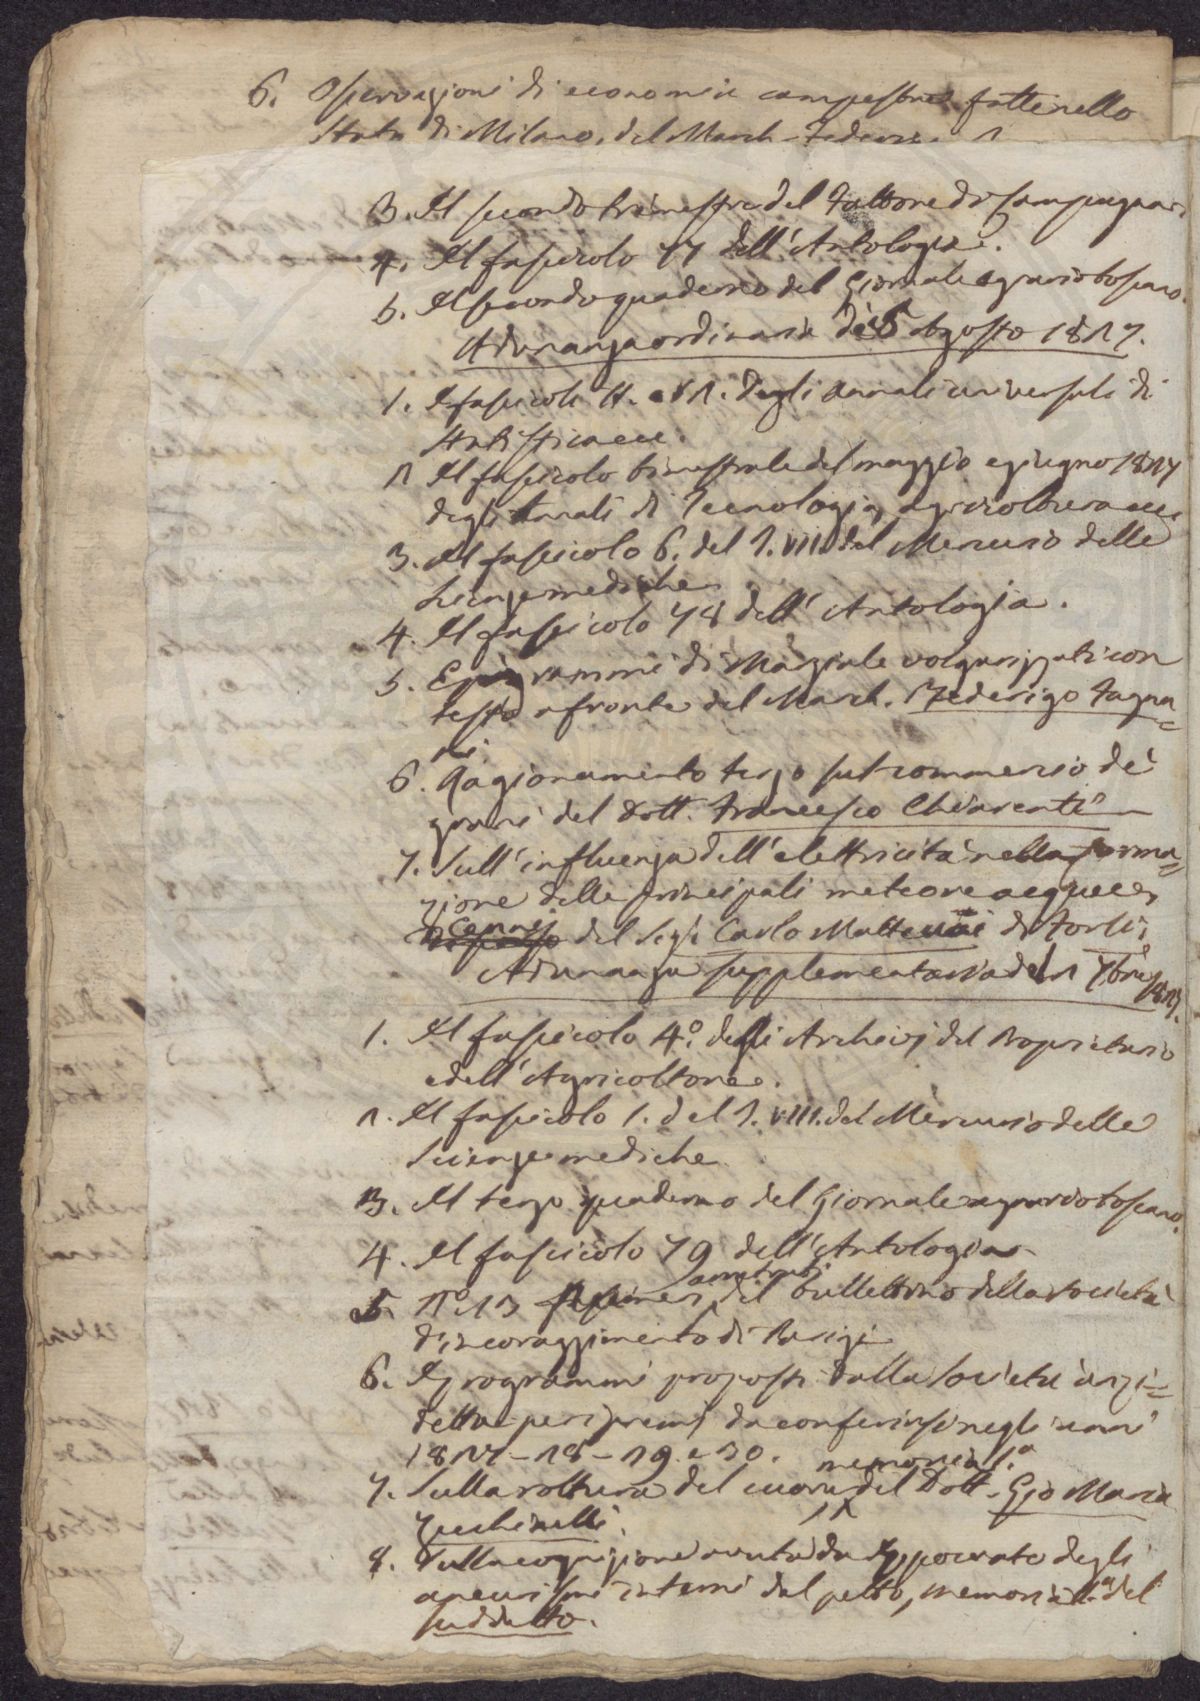 6. Osservazioni di economia campestre fatte nello
Stato di Milano, del March. Federi
3. Il secondo trimestre del Fattore di Campagna
4. Il fascicolo 77 dell'Antologia.
5. Il secondo quaderno del Giornale agrario toscano.
Adunanza ordinaria de' 5 Agosto 1827.
1. I fascicoli degli annali universali di
Statistica ecc.
2 Il fascicolo bimestrale del maggio e giugno 1827
degli Annali di Tecnologia, agricoltura ecc.
3. Il fascicolo 6. del T. VII. del Mercurio delle
Scienze mediche
4. Il fascicolo 78 dell'Antologia.
5. Epigrammi di Marziale volgarizzati con
testo a fronte del March. Federigo Fagna=
ni
6. Ragionamento terzo sul commercio de'
grani del Dott. Francesco Chiarenti
7. Sull'influenza dell'elettricità nella forma=
zione delle principali meteore acquee,
Cenni del Sigr. Carlo Matteucci di Forlì;
Adunanza supplementaria del 2 7bre 1827.
1. Il fascicolo 4º. degli Archivj del Proprietario
e dell'Agricoltore.
2. Il fascicolo 1. del T. VIII. del Mercurio delle
Scienze mediche
3. Il terzo quaderno del Giornale agrario toscano.
4. Il fascicolo 79 dell'Antologia
5. Nº. 23 del bullettino della società
d'incoraggimento di Parigi
6. I programmi proposti dalla Società anzi=
detta per i premj da conferirsi negli anni
1827-28-29. e 30.
7. Sulla rottura del cuore memoria 1.ª del Dott. Gio Maria
Zecchinelli.
8. Sulla cognizione avuta da Ippocrate degli
aneurismi interni del petto, memoria 2.ª del
suddetto.